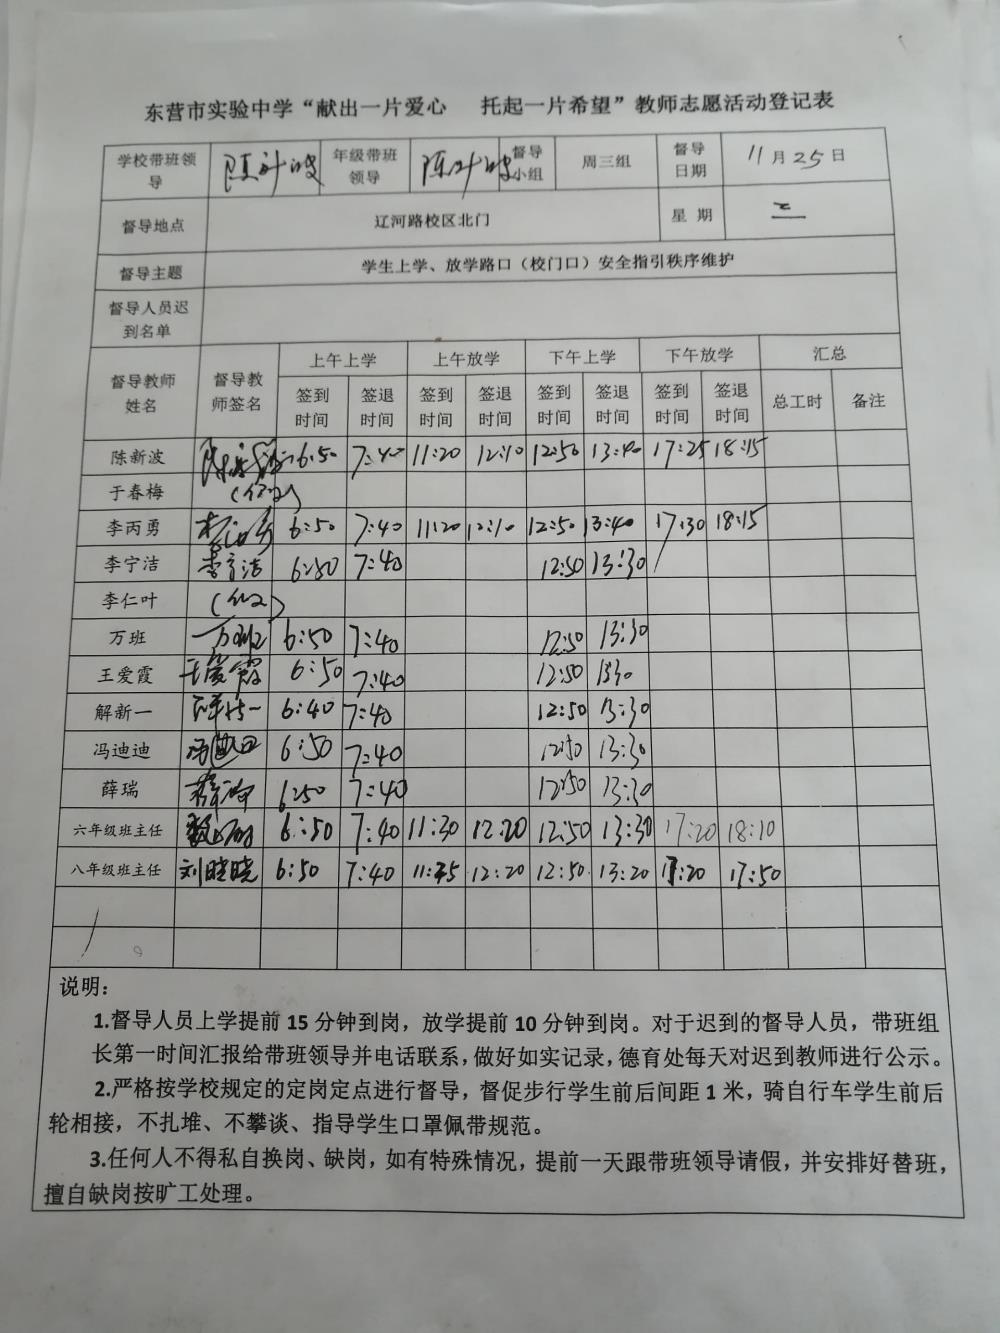 东营市实验中学“献出一片爱心 托起一片希望”教师志愿活动登记表
学校带班领导 年级带班领导 督导小组 周三组 督导日期 11月25日
督导地点 辽河路校区北门 星 期 三
督导主题 学生上学、放学路口（校门口）安全指引秩序维护
督导人员迟到名单
督导教师姓名 督导教师签名 上午上学 上午放学 下午上学 下午放学 汇总
签到时间 签退时间 签到时间 签退时间 签到时间 签退时间 签到时间 签退时间 总工时 备注
陈新波 陈新波 6:50 7:40 11:20 12:10 12:50 13:40 17:25 18:15
于春梅
李丙勇 李丙勇 6:50 7:40 11:20 12:10 12:50 13:40 17:30 18:15
李宁洁 李宁洁 6:50 7:40 12:50 13:30
李仁叶
万班 万班 6:50 7:40 12:50 13:30
王爱霞 王爱霞 6:50 7:40 12:50 13:30
解新一 解新一 6:40 7:40 12:50 13:30
冯迪迪 冯迪迪 6:50 7:40 12:50 13:30
薛瑞 薛瑞 6:50 7:40 12:50 13:30
六年级班主任 6:50 7:40 11:30 12:20 12:50 13:30 17:20 18:10
八年级班主任 刘晓晓 6:50 7:40 12:20 12:50 13:20 17:20 17:50
说明：
1.督导人员上学提前 15 分钟到岗，放学提前 10 分钟到岗。对于迟到的督导人员，带班组
长第一时间汇报给带班领导并电话联系，做好如实记录，德育处每天对迟到教师进行公示。
2.严格按学校规定的定岗定点进行督导，督促步行学生前后间距 1 米，骑自行车学生前后
轮相接，不扎堆、不攀谈、指导学生口罩佩带规范。
3.任何人不得私自换岗、缺岗，如有特殊情况，提前一天跟带班领导请假，并安排好替班，
擅自缺岗按旷工处理。